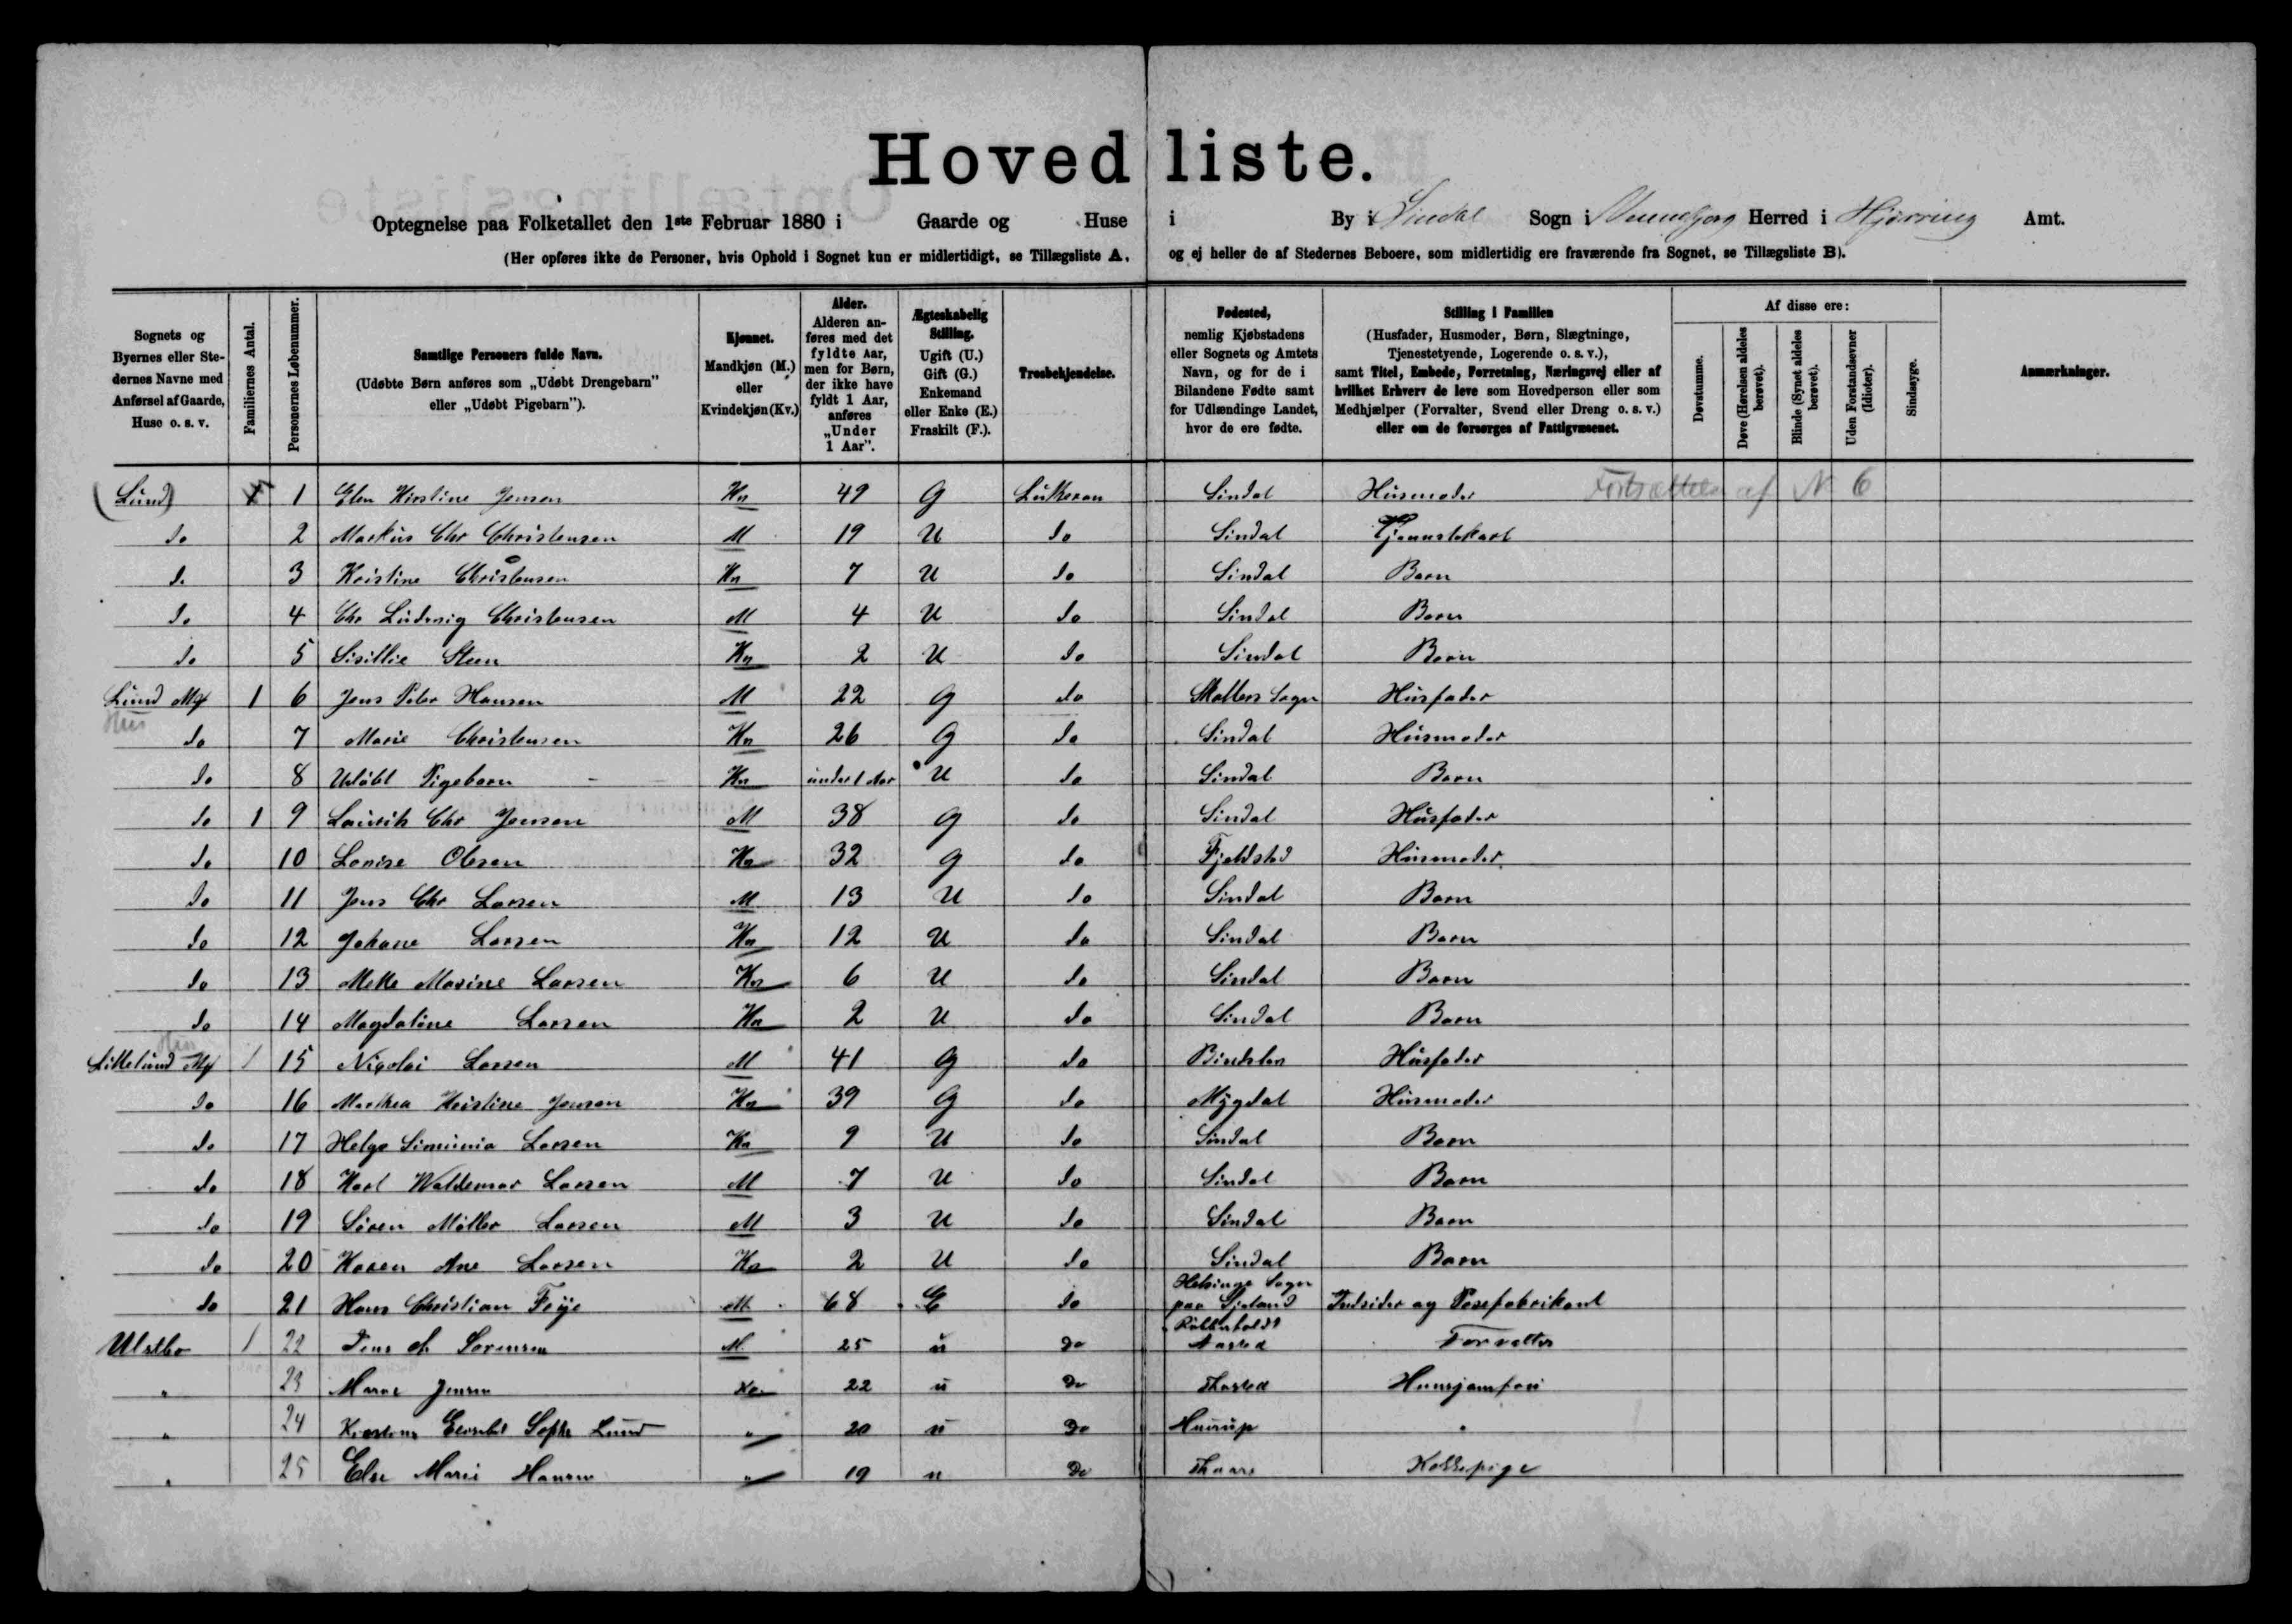 Hovedliste.
Optegnelse paa Folketallet den 1ste Februar 1880 i Gaarde og Huse i By i Sindal Sogn i Vennebjerg Herred i Hjørring Amt.
(Her opføres ikke de Personer, hvis Ophold i Sognet kun er midlertidigt, se Tillægsliste A, og ej heller de af Stedernes Beboere, som midlertidig ere fraværende fra Sognet, se Tillægsliste B).
Sognets og Byernes eller Stedernes Navne med Anførsel af Gaarde, Huse o. s. v.
Familiernes Antal.
Personernes Løbenummer.
Samtlige Personers fulde Navn. (Udøbte Børn anføres som „Udøbt Drengebarn" eller „Udøbt Pigebarn").
Kjønnet. Mandkjøn (M.) eller Kvindekjøn (Kv.)
Alder. Alderen anføres med det fyldte Aar, men for Børn, der ikke have fyldt 1 Aar, anføres „Under 1 Aar".
Ægteskabelig Stilling. Ugift (U.) Gift (G.) Enkemand eller Enke (E.) Fraskilt (F.).
Trosbekjendelse.
Fødested, nemlig Kjøbstadens eller Sognets og Amtets Navn, og for de i Bilandene Fødte samt for Udlændinge Landet, hvor de ere fødte.
Stilling i Familien (Husfader, Husmoder, Børn, Slægtninge, Tjenestetyende, Logerende o. s. v.), samt Titel, Embede, Forretning, Næringsvej eller af hvilket Erhverv de leve som Hovedperson eller som Medhjælper (Forvalter, Svend eller Dreng o. s. v.) eller om de forsørges af Fattigvæsenet.
Af disse ere:
Døvstumme.
Døve (Hørelsen aldeles berøvet).
Blinde (Synet aldeles berøvet).
Uden Forstandsevner (Idioter).
Sindssyge.
Anmærkninger.
(Lund) 1 Elen Kirstine Jensen Kv 49 G Lutheran Sindal Husmoder Fortsættelse af N 6
do 2 Markus Chr Christensen M 19 U do Sindal Tjenestekarl
do 3 Kristine Christensen Kv 7 U do Sindal Barn
do 4 Chr Ludvig Christensen M 4 U do Sindal Barn
do 5 Sisillie Steen Kv 2 U do Sindal Barn
Lund Mk 1 6 Jens Peter Hansen M 22 G do Mollers Sogn Husfader
Hus
do 7 Marie Christensen Kv 26 G do Sindal Husmoder
do 8 Udøbt Pigebarn Kv under 1 Aar U do Sindal Barn
do 1 9 Laurits Chr Jensen M 38 G do Sindal Husfader
do 10 Lovise Olesen Kv 32 G do Fjeldsted Husmoder
do 11 Jens Chr Larsen M 13 U do Sindal Barn
do 12 Johane Larsen Kv 12 U do Sindal Barn
do 13 Mette Marine Larsen Kv 6 U do Sindal Barn
do 14 Magdaline Larsen Kv 2 U do Sindal Barn
Hus
Lillelund 1 15 Nicolai Larsen M 41 G do Bindslev Husfader
do 16 Marthea Kristine Jensen Kv 39 G do Mygdal Husmoder
do 17 Helga Larsen Kv 9 U do Sindal Barn
do 18 Karl Waldemar Larsen M 7 U do Sindal Barn
do 19 Søren Møller Larsen M 3 U do Sindal Barn
do 20 Karen Ane Larsen Kv 2 U do Sindal Barn
do 21 Hans Christian Feije M 68 E do Helsinge Sogn paa Sjæland Indsider og Posefabrikant
Ulstbo 1 22 Jens Sørensen M. 25 u do Aasted Forvalter
" 23 Maren Jensen Kv. 22 u do Thorsted Huusjomfru
" 24 Sophi Lund " 20 u do Huirup "
" 25 Else Marie Hansen " 19 u do Thaars Kokkepige